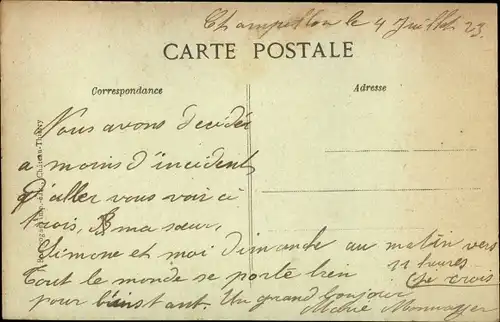 le 4 Juillet 23.
CARTE POSTALE
Correspondance
Adresse
Nous avons decidée
a moins d'incident
d'aller vous voir a
trois, ma sœur,
Simone et moi dimanche au matin vers
11 heures
Tout le monde se porte bien
Je crois
pour l'instant. Un grand bonjour
Marie
Château-Thierry